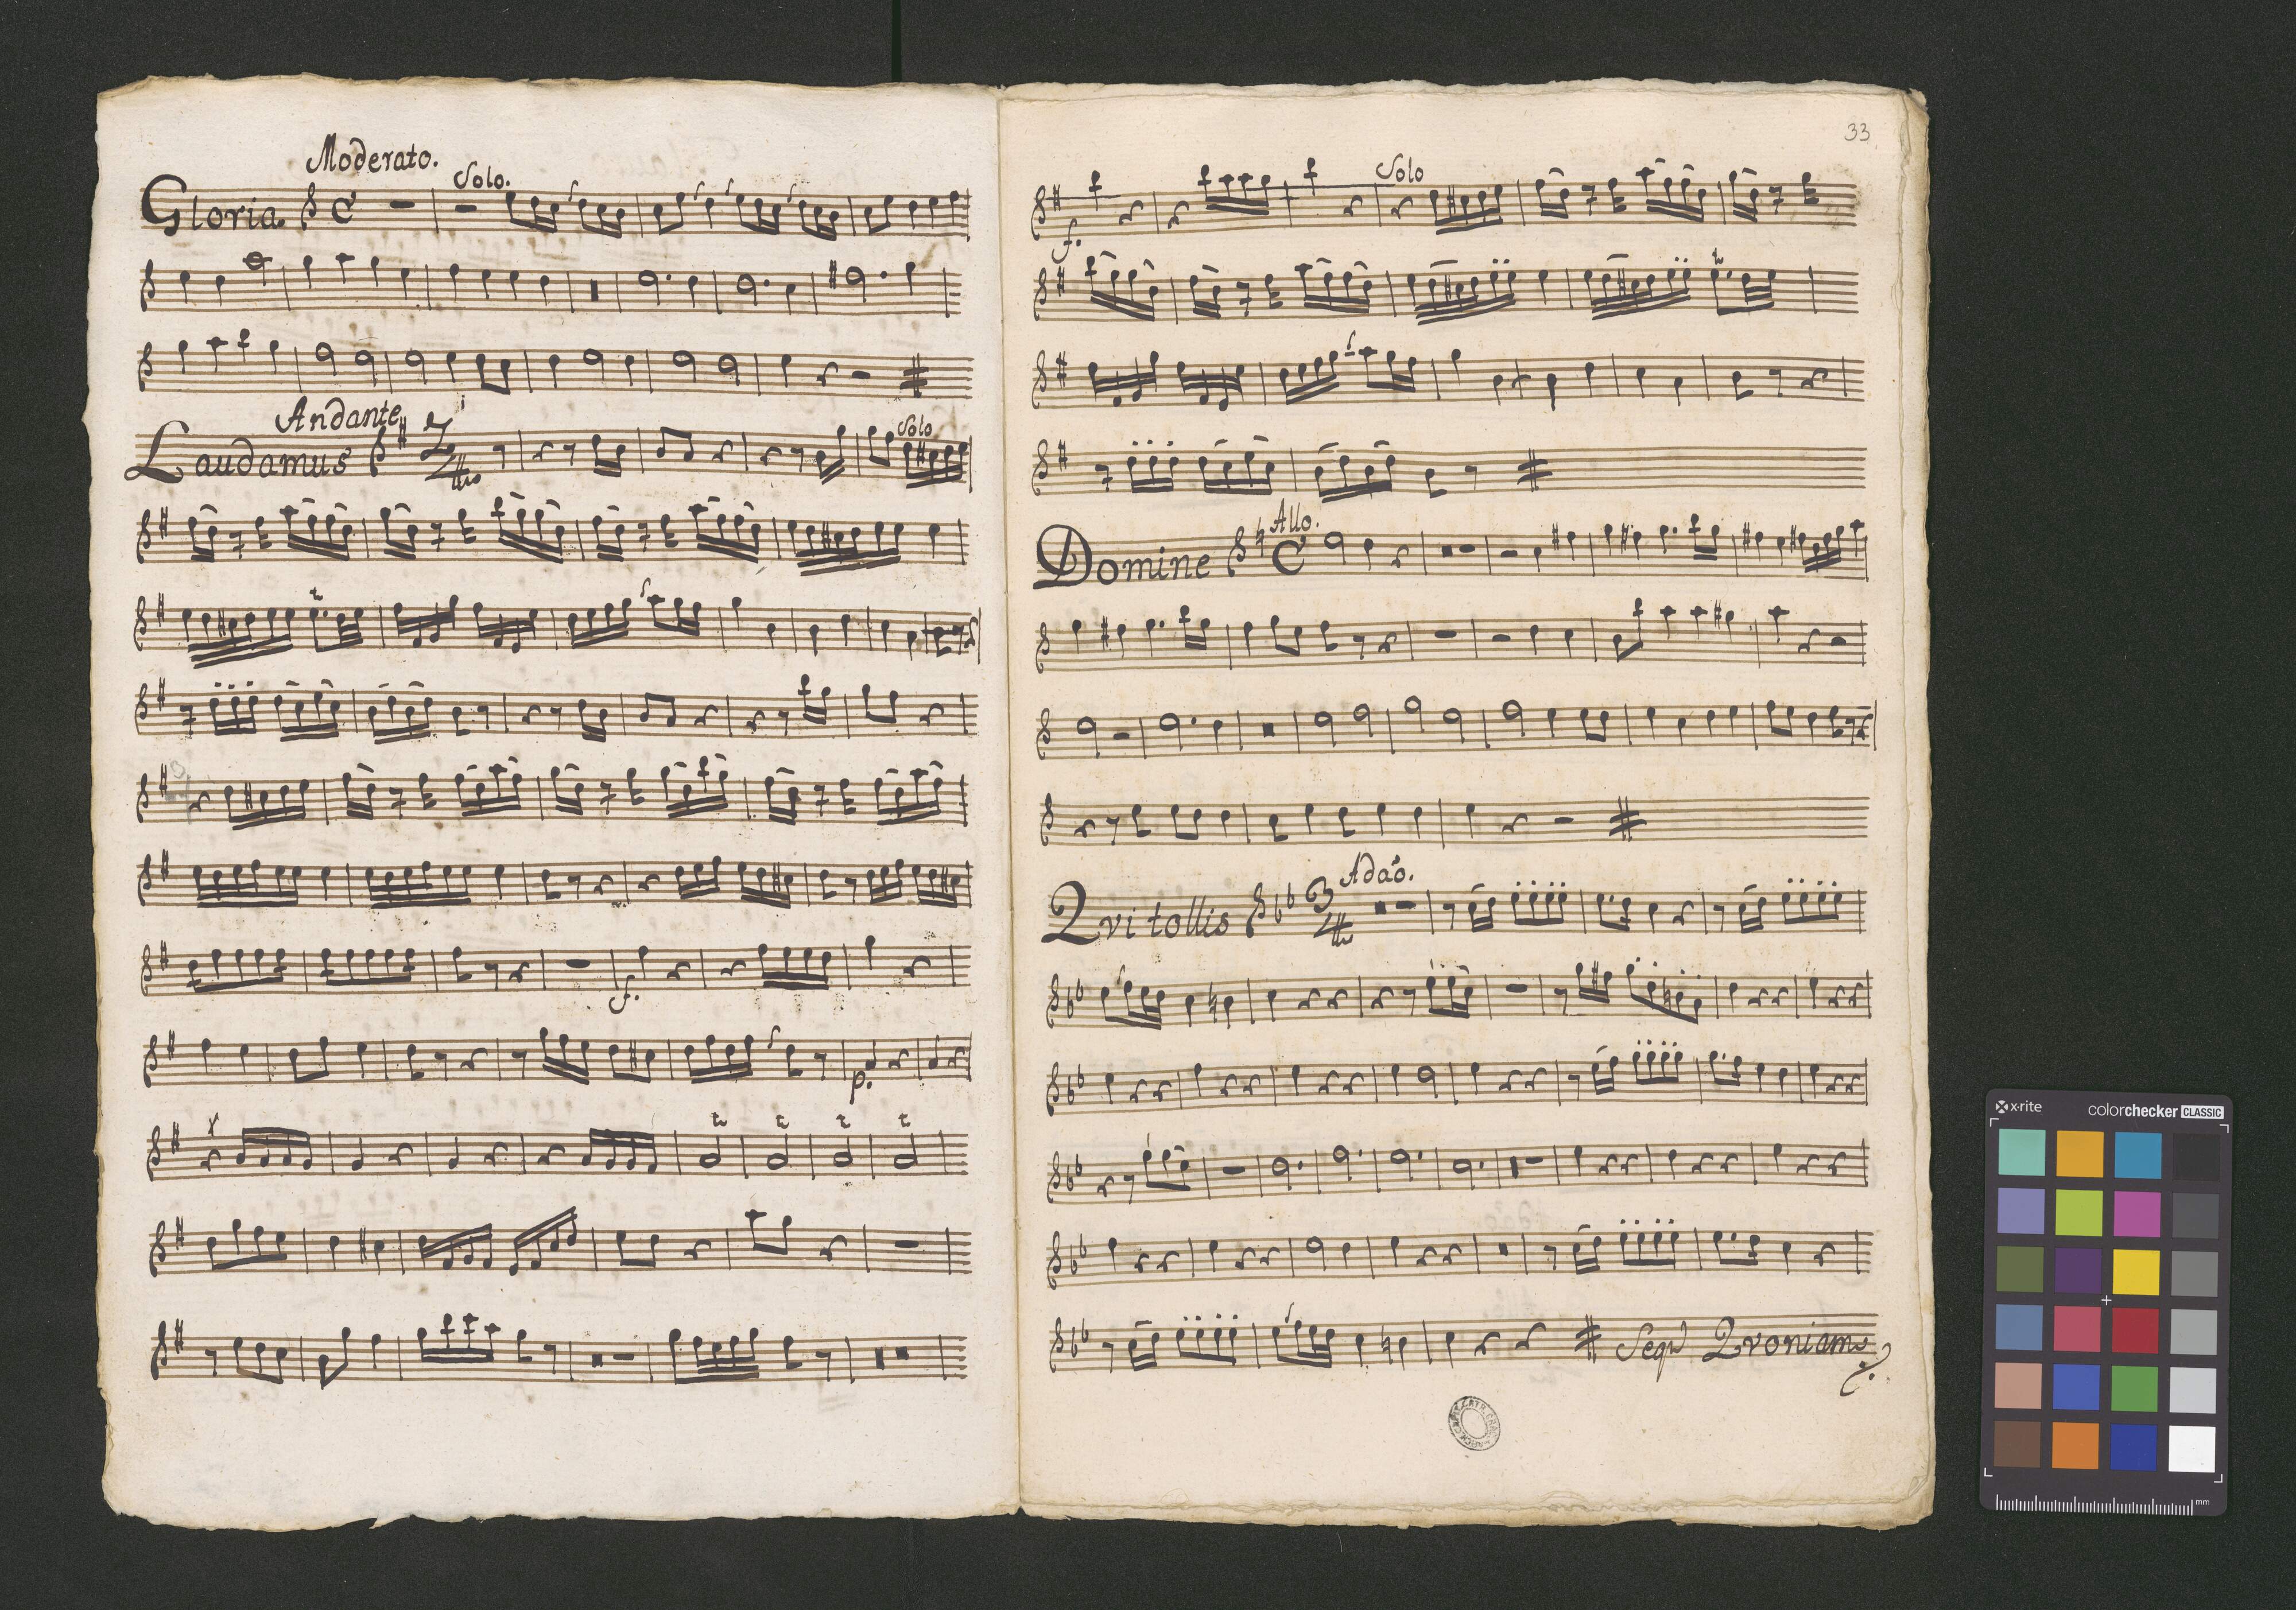 Moderato.
Solo.
Gloria
Andante
Solo
Laudamus
f.
p.
33
Solo
f.
Allo.
Domine
Adaō.
Qvi tollis
Seqr Qvoniam
x-rite
colorchecker CLASSIC
mm